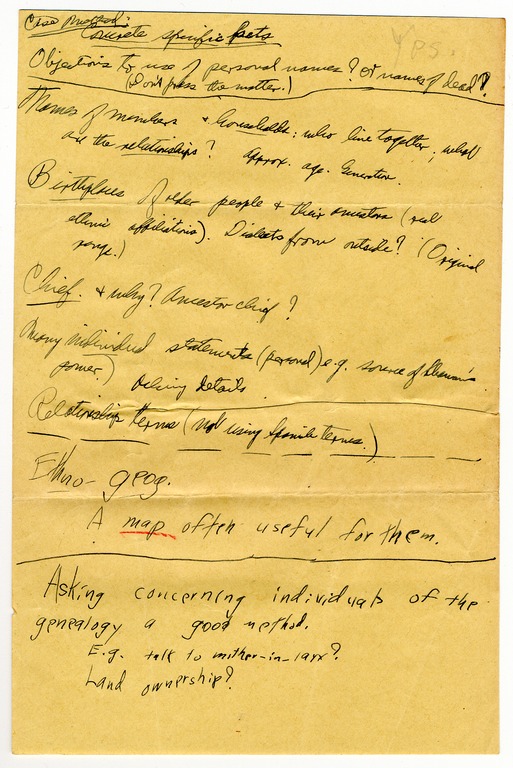 Case method:
Concrete specific facts
YPS.
Objections to use of personal names? Or names of dead?
(Don't press the matter.)
Names of members & households: who live together; what
are the relationships? Approx. age. Generation.
Birthplaces of older people & their ancestors (real
ethnic affiliations). Dialects from outside? (Original
range.)
Chief. & why? Ancestor chief?
Many individual statements (personal) e.g. source of Shaman's
power.) details
Relationship terms (not using Spanish terms.)
Ethno-geog.
A map often useful for them.
Asking concerning individuals of the
genealogy a good method.
E.g. talk to mother-in-law?
Land ownership?